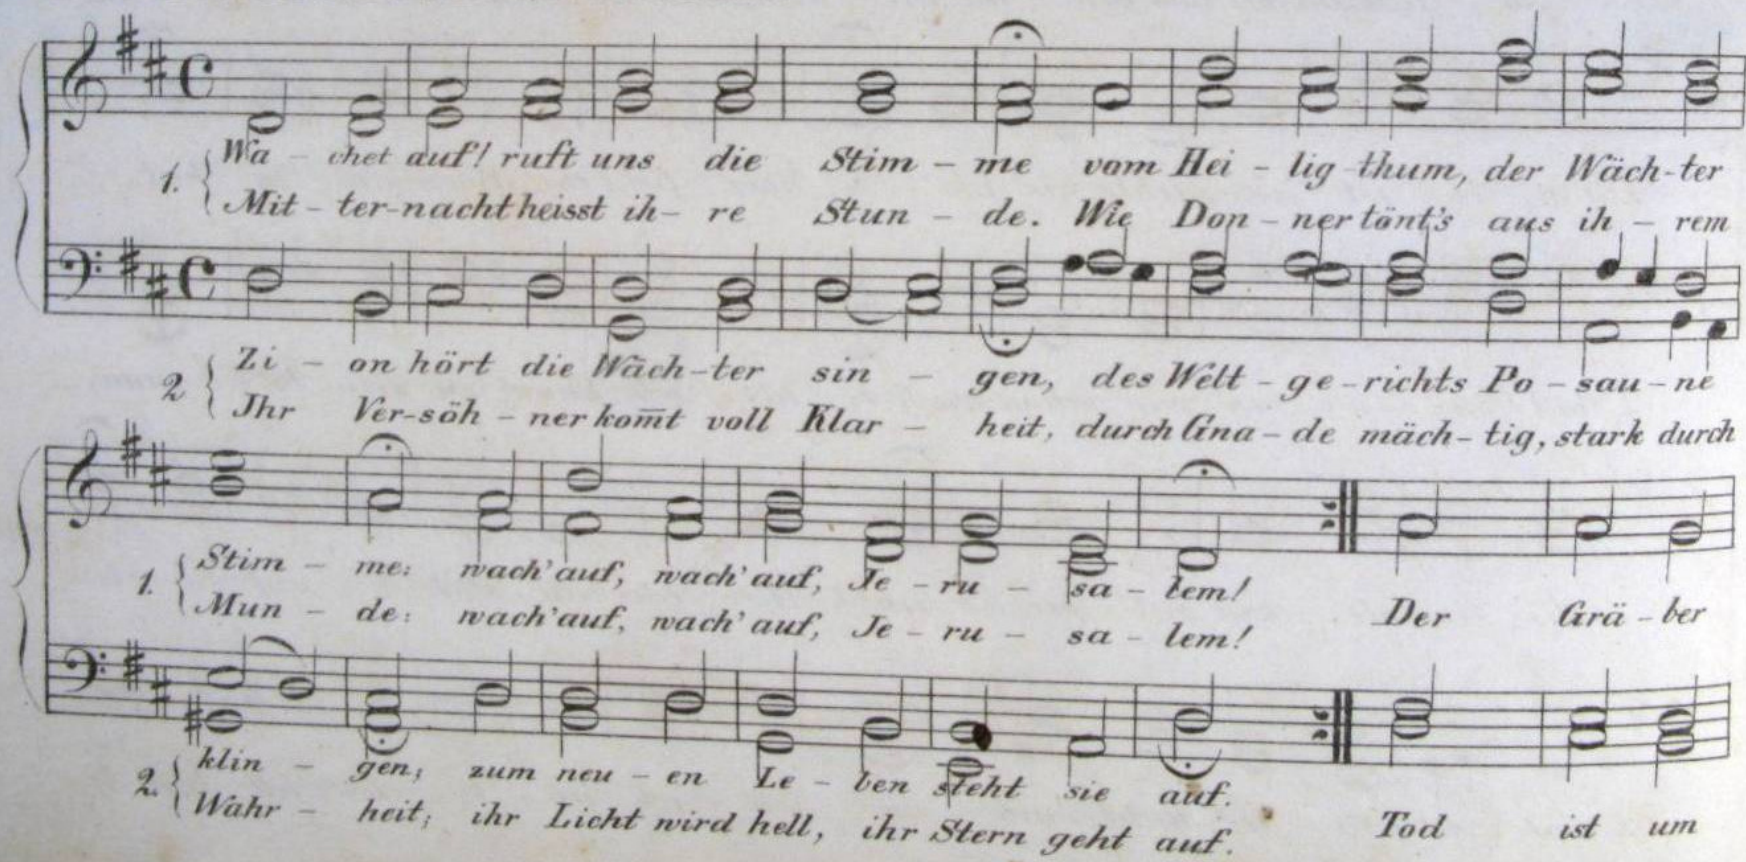 Wa - chet auf! ruft uns die Stim - me vom Hei - lig - thum, der Wäch - ter
1. Mit - ter - nacht heisst ih - re Stun - de. Wie Don - ner tönt's aus ih - rem
2 Zi - on hört die Wäch - ter sin - gen, des Welt - ge - richts Po - sau - ne
Jhr Ver - söh - ner kom̅t voll Klar - heit, durch Gna - de mäch - tig, stark durch
1. Stim - me: wach' auf, wach' auf, Je - ru - sa - lem!
Mun - de: wach' auf, wach' auf, Je - ru - sa - lem! Der Grä - ber
2. klin - gen; zum neu - en Le - ben steht sie auf.
Wahr - heit; ihr Licht wird hell, ihr Stern geht auf. Tod ist um